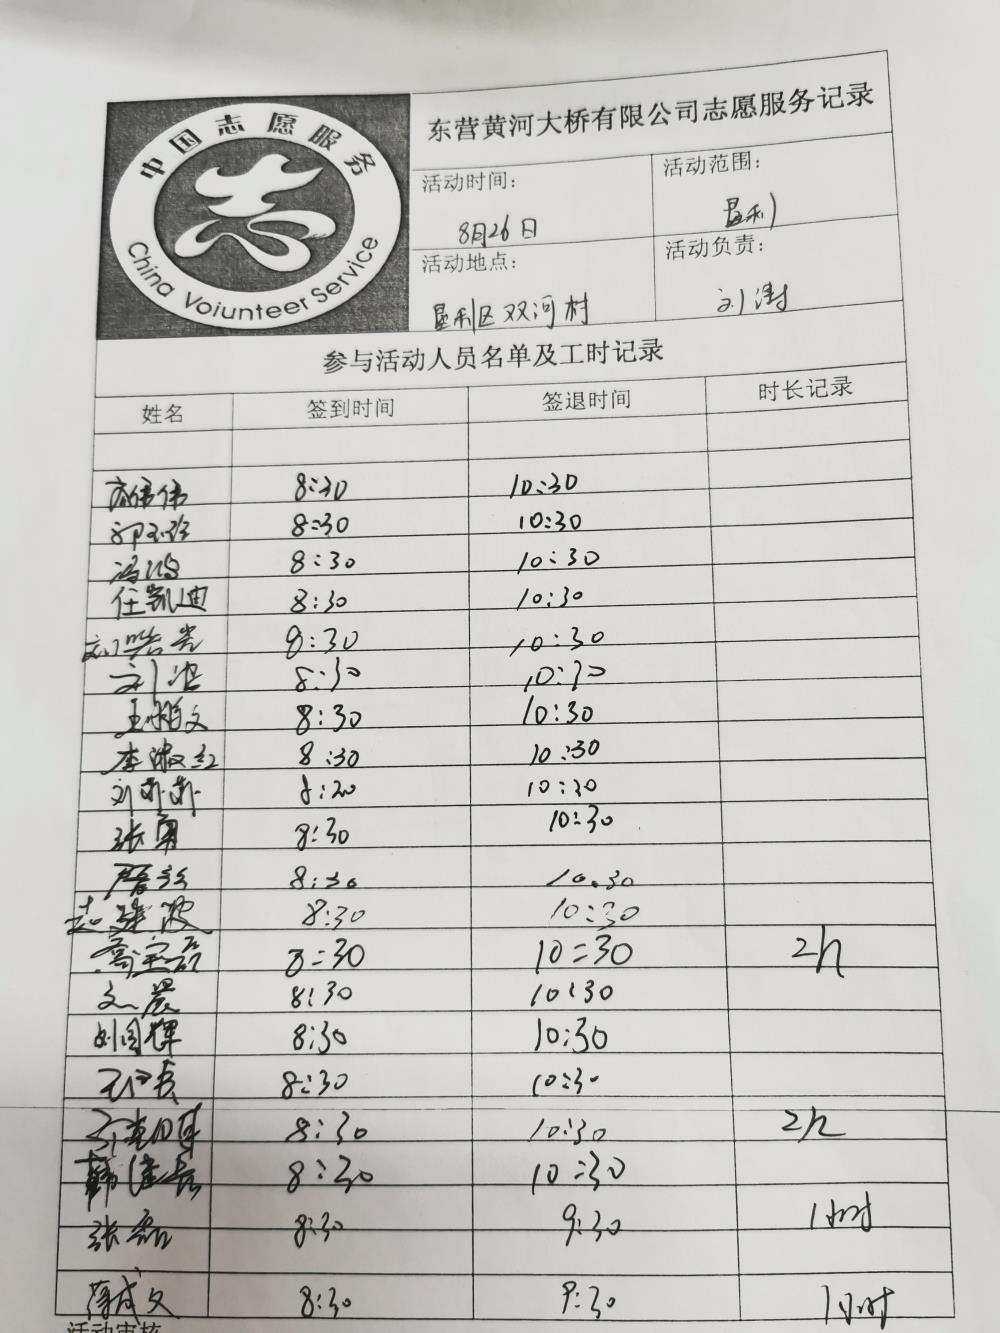 中国志愿服务
China Voiunteer Service
东营黄河大桥有限公司志愿服务记录
活动时间： 活动范围：
8月26日 垦利
活动地点： 活动负责：
垦利区双河村 刘澍
参与活动人员名单及工时记录
姓名 签到时间 签退时间 时长记录
8:30 10:30
8:30 10:30
冯鸿 8:30 10:30
任凯迪 8:30 10:30
8:30 10:30
8:30 10:30
8:30 10:30
李淑红 8:30 10:30
刘莉莉 8:30 10:30
张勇 8:30 10:30
8:30 10:30
赵建波 8:30 10:30
8:30 10:30 2h
刘晨 8:30 10:30
刘国辉 8:30 10:30
8:30 10:30
8:30 10:30 2h
韩建长 8:30 10:30
张磊 8:30 9:30 1小时
薄成文 8:30 9:30 1小时
活动审核